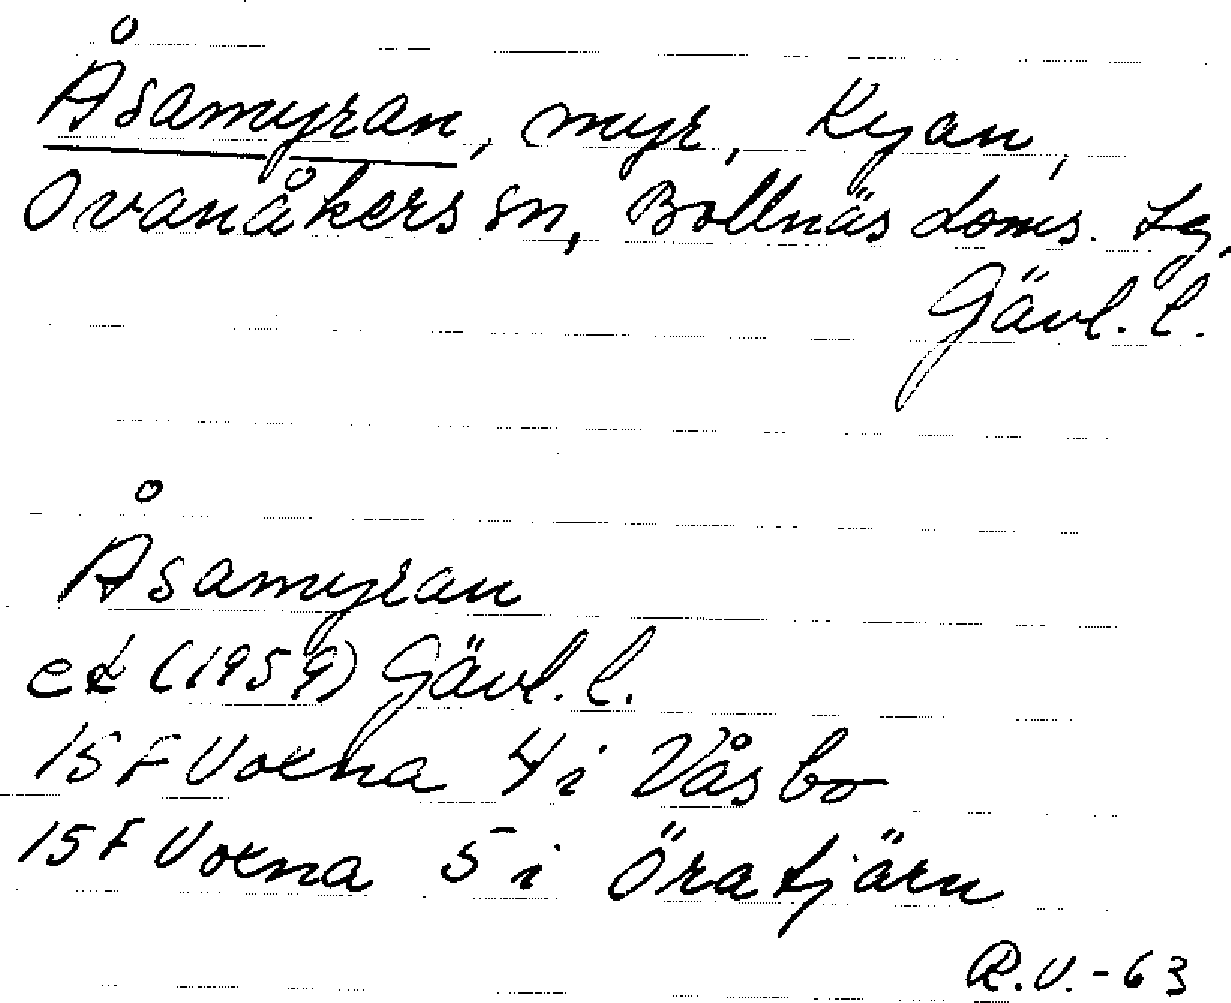 Åsamyran, myr, Kyan,
Ovanåkers sn, Bollnäs doms. Lg,
Gävl. l.
Åsamyran
ek (1959) Gävl. l.
15F Voxna 4i Våsbo
15F Voxna 5i Öratjärn
R.V.-63